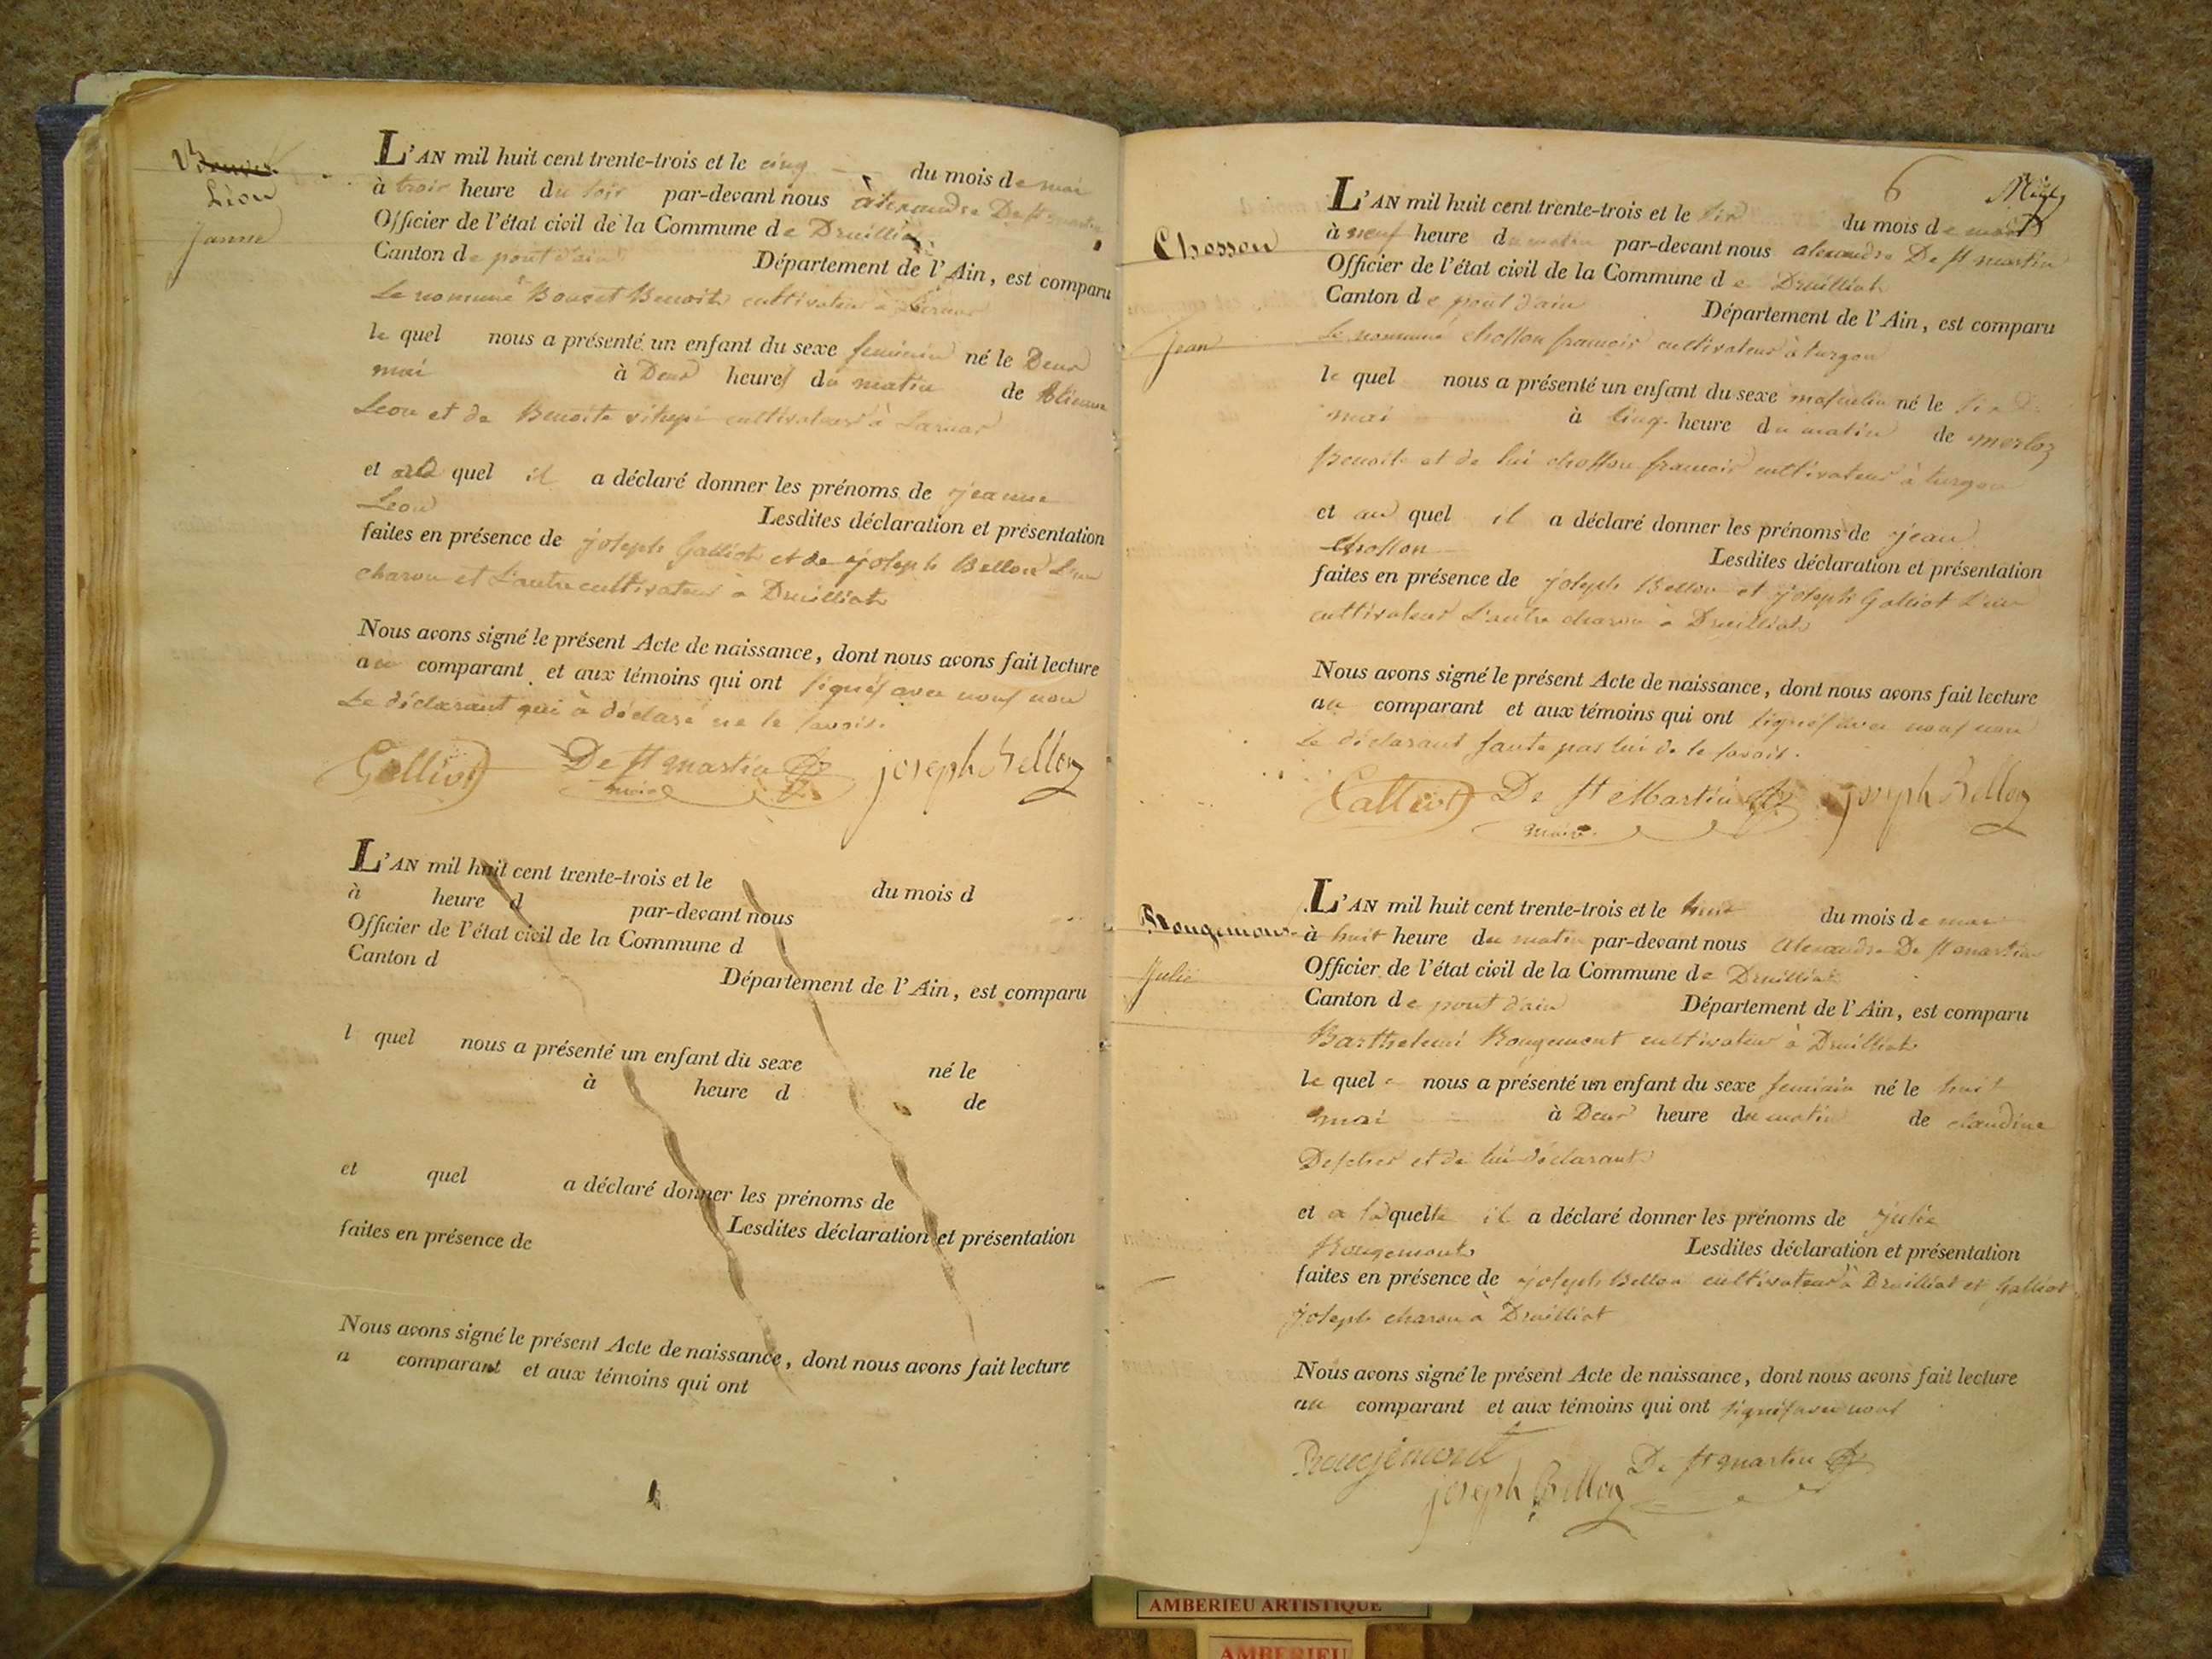 Léon
Janne
L'AN mil huit cent trente-trois et le cinq du mois de mai
à trois heure du soir par-devant nous alexandre De st martin
Officier de l'état civil de la Commune de Druilliat
Canton de pont d'ain Département de l'Ain, est comparu
Le nommé Bouvet Benoit cultivateur à
le quel nous a présenté un enfant du sexe feminin né le Deux
mai à Deux heures du matin de
Leon et de Benoite cultivateur à
et quel il a déclaré donner les prénoms de jeanne
Leon Lesdites déclaration et présentation
faites en présence de joseph Galliot et de joseph Bellon L'un
charon et L'autre cultivateur à Druilliat
Nous avons signé le présent Acte de naissance, dont nous avons fait lecture
au comparant et aux témoins qui ont signés avec nous non
Le déclarant qui à déclaré ne le savoir.
Galliot De st martin joseph Bellon
maire
L'AN mil huit cent trente-trois et le du mois d
à heure d par-devant nous
Officier de l'état civil de la Commune d
Canton d Département de l'Ain, est comparu
l quel nous a présenté un enfant du sexe né le
à heure d de
et quel a déclaré donner les prénoms de
Lesdites déclaration et présentation
faites en présence de
Nous avons signé le présent Acte de naissance, dont nous avons fait lecture
a comparant et aux témoins qui ont
6
Chosson
Jean
L'AN mil huit cent trente-trois et le six du mois de mai
à neuf heure du matin par-devant nous alexandre De st martin
Officier de l'état civil de la Commune de Druilliat
Canton de pont d'ain Département de l'Ain, est comparu
Le nommé chosson francois cultivateur à turgon
le quel nous a présenté un enfant du sexe masculin né le six
mai à cinq heure du matin de merloz
Benoite et de lui chosson francois cultivateur à turgon
et au quel il a déclaré donner les prénoms de jean
chosson Lesdites déclaration et présentation
faites en présence de joseph Bellon et joseph Galliot L'un
cultivateur L'autre charon à Druilliat
Nous avons signé le présent Acte de naissance, dont nous avons fait lecture
au comparant et aux témoins qui ont signés avec nous non
Le déclarant faute par lui de le savoir.
Galliot De st Martin joseph Bellon
maire
Rougemont
Julie
L'AN mil huit cent trente-trois et le huit du mois de mai
à huit heure du matin par-devant nous Alexandre De st martin
Officier de l'état civil de la Commune de Druilliat
Canton de pont d'ain Département de l'Ain, est comparu
Barthelemi Rougemont cultivateur à Druilliat
le quel nous a présenté un enfant du sexe feminin né le huit
mai à Deux heure du matin de claudine
et de lui déclarant
et a laquelle il a déclaré donner les prénoms de julie
Rougemont Lesdites déclaration et présentation
faites en présence de joseph Bellon cultivateur à Druilliat et Galliot
joseph charon à Druilliat
Nous avons signé le présent Acte de naissance, dont nous avons fait lecture
au comparant et aux témoins qui ont signés avec nous
Rougemont De st martin
joseph Bellon
AMBERIEU ARTISTIQUE
AMBERIEU